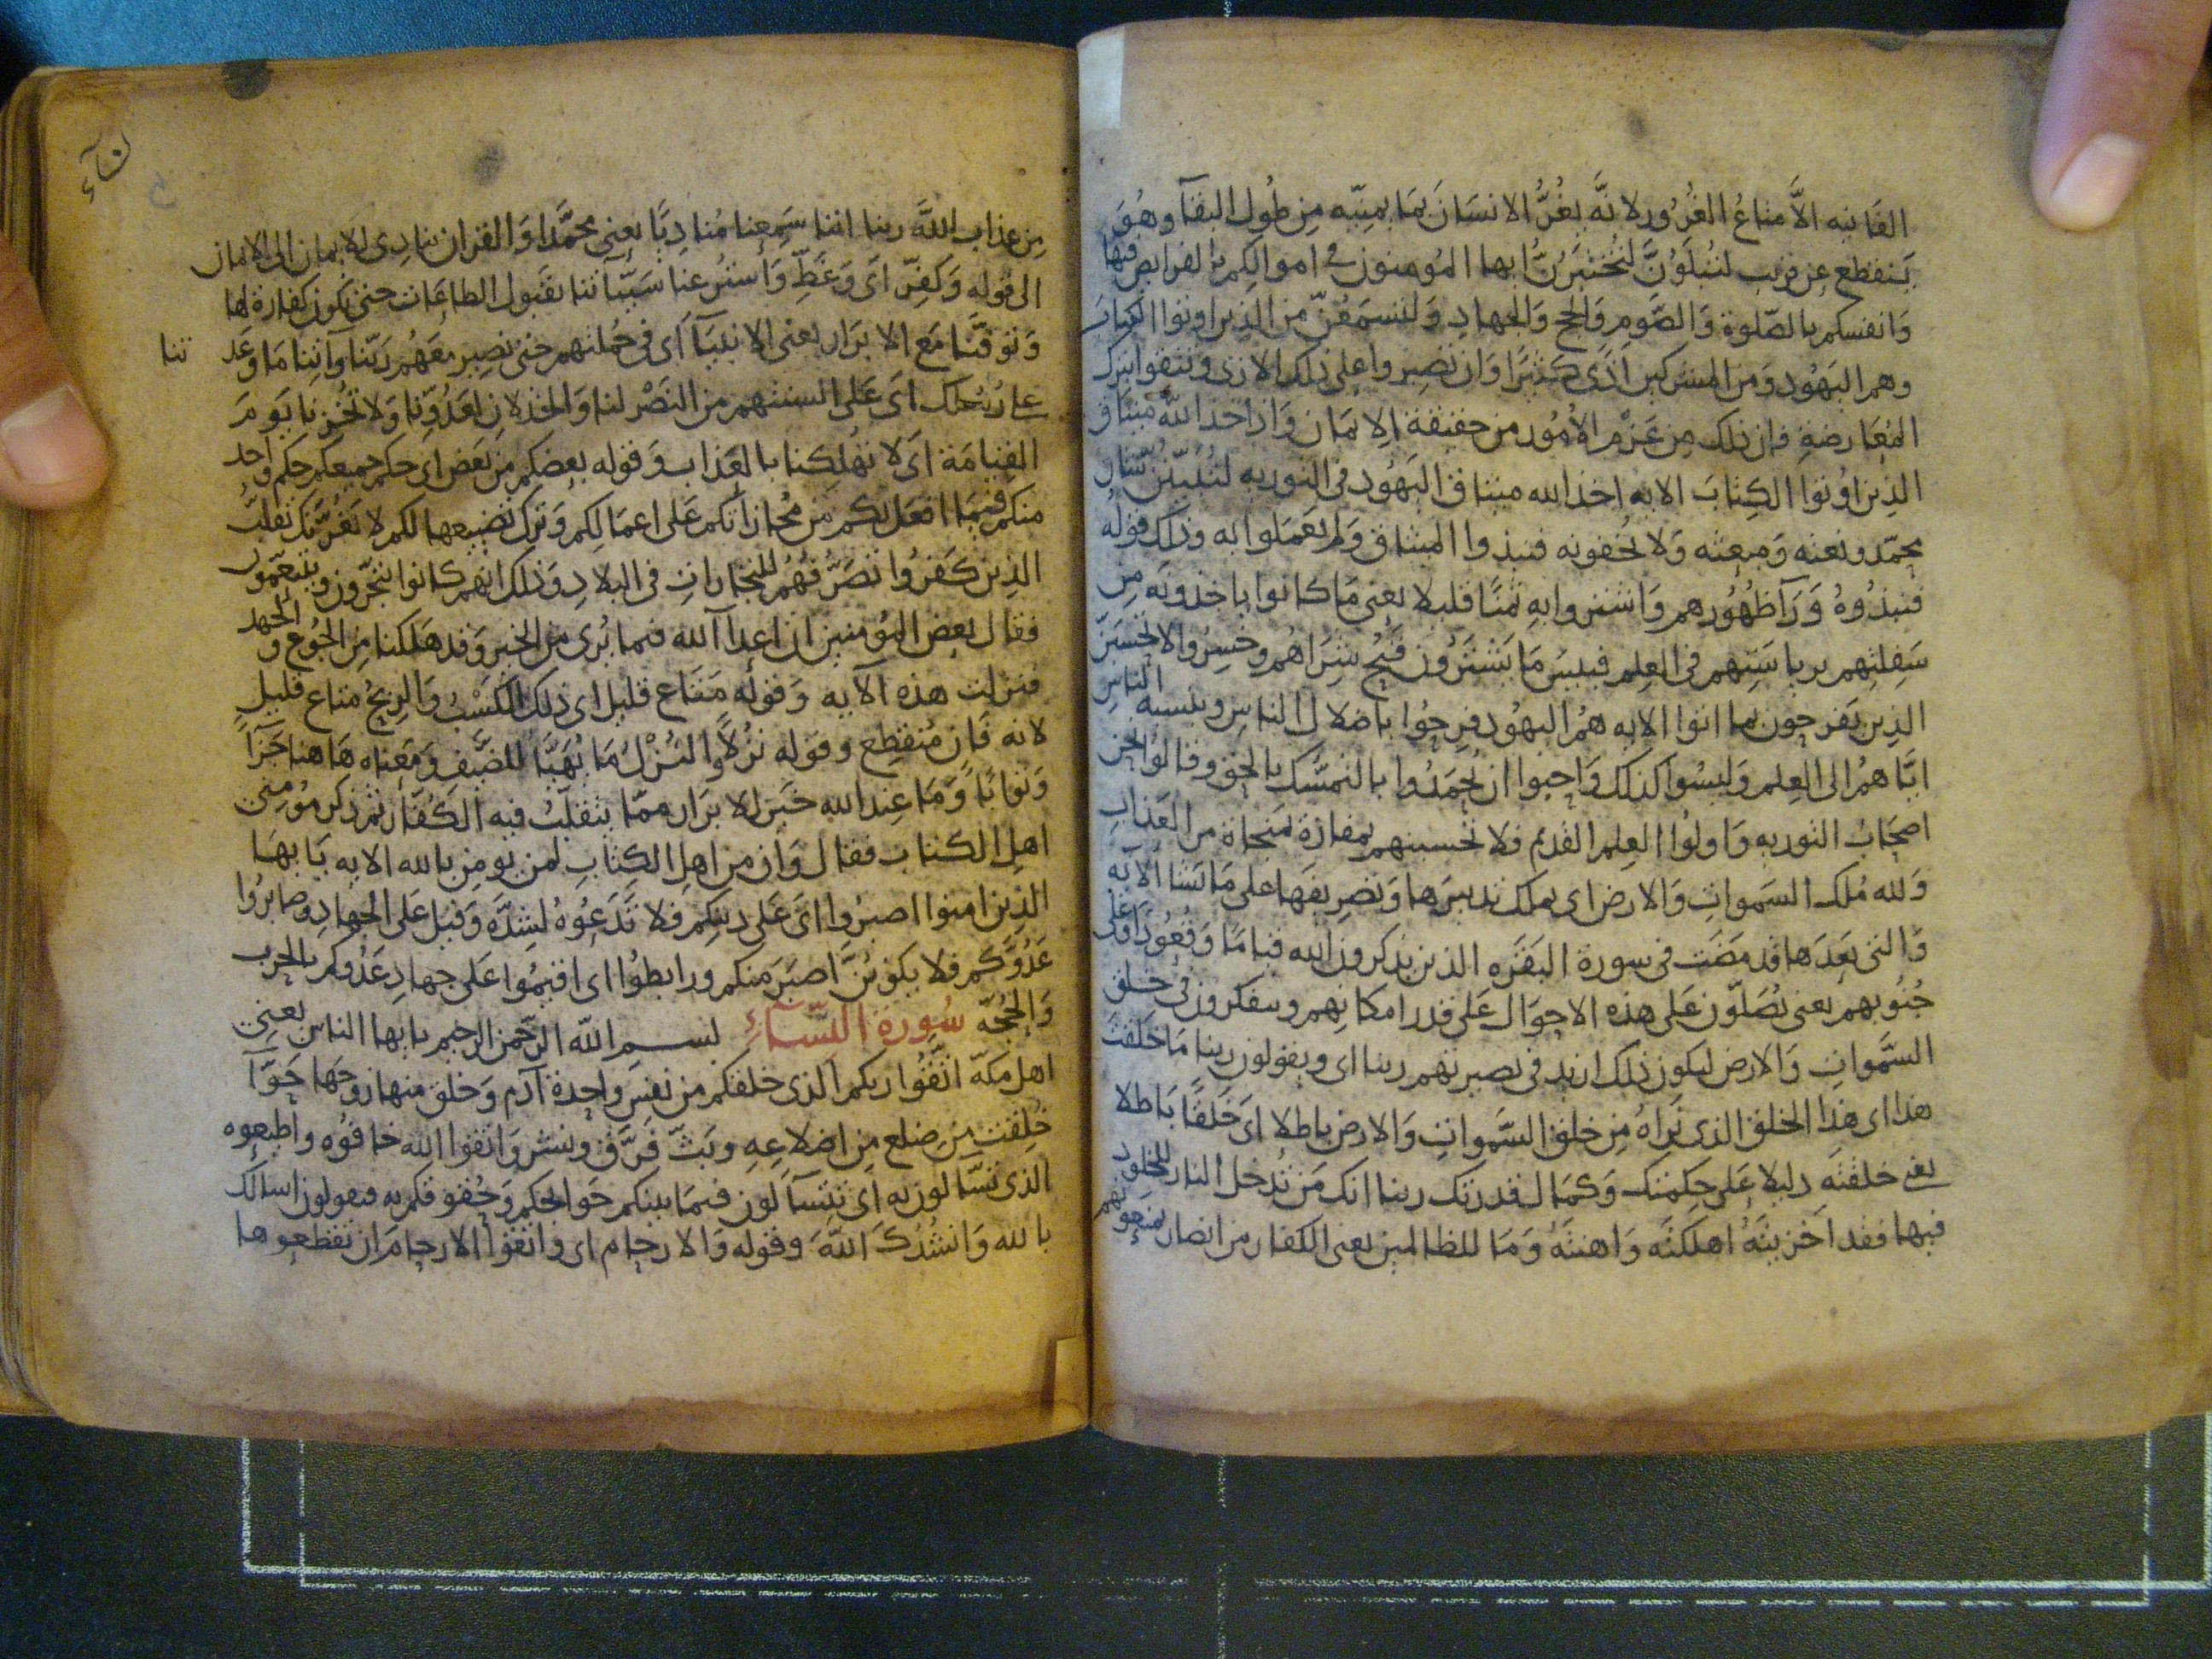 الفَانيه الاَّ متاعُ الغُرُور لانَّه يغُرُّ الانسَان بمَا يمنِّيه مِن طُول البقآ وهُوَ
يَنقطع عن قريب لتُبلَوُنَّ لتُختبَرُنَّ ايها المُومنون في اموالكم بالفرايض فيها
وَانفسكم بالصّلوة وَالصَّومِ وَالحج وَالجهادِ وَلتسمَعُنّ من الذِين اوتوا الكِتابَ
وهم اليَهُود وَمن المشركين اذًى كثيرًا وَان تصبِروا على ذلك الاذى وتتقوا بترك
المُعَارضةِ فان ذلك مِن عَزْم الأمُور من حقيقة الايمَان وَاذ اخذ اللّه مِيثَاق
الذِين اوتوا الكِتَابَ الايه اخذ الله ميثاق اليَهُود في التوريه لتُبَيّنُنّ شان
محمّد ونعته وَمبعثه وَلا تخفونه فنبذوا الميثاق وَلم يعمَلوا به وذلك قوله
فنبذُوهُ وَرَآ ظهُورهم وَاشتروا به ثمنًا قليلا يعنى مَا كانوا ياخذونَه مِن
سَفِلتِهم برياسَتِهم في العِلم فبيس مَا يَشتَرُون قبُح شِرَاهُم وخسِرُوا لا تحسَبَنّ
الذِين يَفرحون بما اتوا الايه هُمُ اليهُود فرِحُوا باضلال الناسِ وبنسبه الناسِ
ايَّاهمُ الى العِلم وَليسُوا كذلك وَاحبوا ان يُحمَدُوا بالتمسّك بالحق وقالوُا نحن
اصحَابُ التوريه وَاولوُا العِلم القدِيم فلا تحسبنهم بمفازة بمنجاة من العَذابِ
وَلله مُلك السَموات وَالارض اى يملك تدبيرَها وَتصرِيفَها على مَا يَشَا الآيَه
وَالتى بَعدَها قد مضَت في سورة البَقَرَه الذين يذكرون الله قيَامًا وَقُعُودًا وَعَلى
جُنُوبهم يعنى يُصَلّون عَلى هذه الاحوَال عَلى قدر امكانهم ويتفكرون في خلقِ
السَّموات وَالارض ليكون ذلك ازيد فى بصيرتهم ربنا اى ويقولون ربنا مَا خلقتَ
هذا اى هذا الخلق الذى نَرَاهُ مِن خلق السَّموات وَالارض باطلا اىَ خَلقًا بَاطلا
يعنى خلقتَه دليلا عَلى حِكمتِك وَكمَال قدرتك ربنا انك مَن تُدخل النار للخلود
فيها فقد اخزيتَهُ اهلكتَه وَاهنتَهُ وَمَا للظالمين يعنى الكفار من انصار يمنعونهم
مِن عذاب الله ربنا اننا سَمِعنا مُناديًا يعنى محمَّدًا وَالقران ينادِى للايمان الى الايمان
الى قوله وَكفِّر اىَ وَغَطِّ وَاستُر عنا سَيِّاتنا بقبول الطاعَات حتى تكون كفارة لها
وَتوفّنَا مَع الابرَار يعنى الانبيَآ اى في جُملتهم حتى نصِير معَهُم رَبّنا وَآتِنا مَا وَعَد تنا
على رُسُلك اىَ عَلى السنتهم من النَصْر لنا وَالخذلانِ لعَدُوّنا وَلا تُخزنا يَومَ
القِيَامَة اىَ لا تهلِكنا بالعَذاب وَقوله بعضكم مِن بَعض اى حكم جميعكم حكم واحد
منكم فيمَا افعَل بكم من مُجَازاتكم عَلى اعمَالِكم وَترك تضييعها لكم لا يَغُرَّنك تقلّبُ
الذِين كفرُوا تصَرُّفهُم للتجارات في البلادِ وَذلك انهم كانوا يتجِرُون ويتنعّمون
فقال بعض المؤمنين ان اعدآ الله فيما نُرى من الخير وَقد هَلكنا مِن الجُوع و الجهد
فنزلت هذه الآيه وَقوله مَتَاع قليل اى ذلك الكَسْبُ وَالرِبحُ متاع قليل
لانه فَانٍ مُنقطِع وقوله نزُلاً والنُزُلُ مَا يُهَيَّا للضَيف وَمَعناه هَاهنا جَزآً
وَثوابًا وَمَا عِند الله خَير للابرَار ممّا يتقلّبُ فيه الكُفّار ثم ذكر مومنى
اهلِ الكتاب فقال وَان من اهلِ الكِتابِ لَمن يومن بالله الايه يَايهَا
الذين امنوا اصبرُوا اىَ عَلى دينِكم فلا تَدَعُوهُ لشِدَّه وَقيل عَلى الجهاد وَصابرُوا
عَدُوَّكم فلا يكوننَّ اصبَر منكم ورابطوُا اى اقيمُوا عَلى جهادِ عَدُوكم بالحرب
وَالحُجّه سُورة النّسَآءِ بسـم اللّه الرّحمن الرحيم يايها الناس يعنى
اهل مَكّة اتّقُوا ربكم الذى خلقكم من نفسٍ واحدة آدم وَخلق منها زوجَها حَوَّآ
خُلقت مِن ضلع مِن اضلاعِهِ وبَثّ فَرَّق ونشر وَاتقوا الله خافوُه واطيعوه
الذى تسّالون به اى تتسآلون فيمَا بينكم حَوايجكم وَحُقوقكم به فيقولون اسالك
بالله وَانشُدُكَ اللَّهَ وقوله وَالارحام اى واتقوُا الارحامَ ان تقطعوها